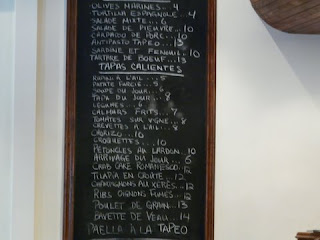 OLIVES MARINÉS... 4
TORTILLA ESPAGNOLE... 4
SALADE MIXTE... 6
SALADE DE PIEUVRE... 10
CARPACCIO DE PORC... 10
ANTIPASTO TAPEO... 13
SARDINE ET FENOUIL... 10
TARTARE DE BOEUF... 13
TAPAS CALIENTES
À L'AIL... 5
PATATE FARCIE... 5
SOUPE DU JOUR... 6
TAPA DU JOUR... 8
LEGUMES... 6
CALMARS FRITS... 9
TOMATES SUR VIGNE... 8
CREVETTES À L'AIL... 8
CHORIZO
CROQUETTES... 10
PETONCLES AU LARDON... 10
ARRIVAGE DU JOUR... 6
CRAB CAKE ROMANESCO... 12
TILAPIA EN CROUTE... 12
CHAMPIGNONS AU XÉRÈS... 12
RIBS OIGNONS FUMÉS... 12
POULET DE GRAIN... 13
BAVETTE DE VEAU... 14
PAELLA À LA TAPEO